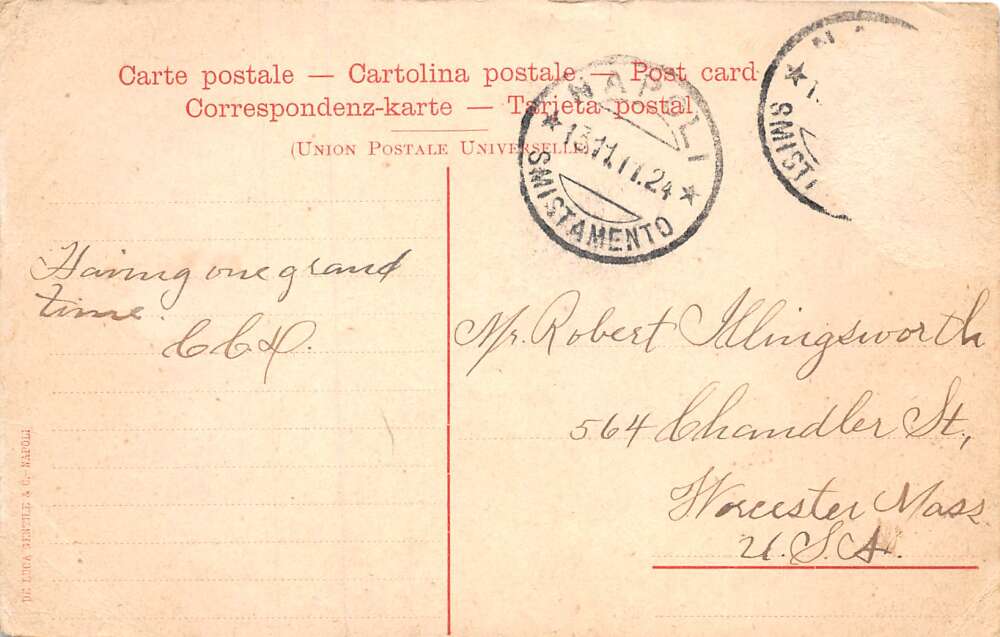 Carte postale — Cartolina postale — Post card
Correspondenz-karte — Tarjeta postal
(UNION POSTALE UNIVERSELLE)
NAPOLI
13.11.11.24
SMISTAMENTO
NA
SMIST
Having one grand
time.
Mr. Robert Illingsworth
564 Chandler St,
Worcester Mass
U.S.A.
DE LUCA GENTILE & C. - NAPOLI